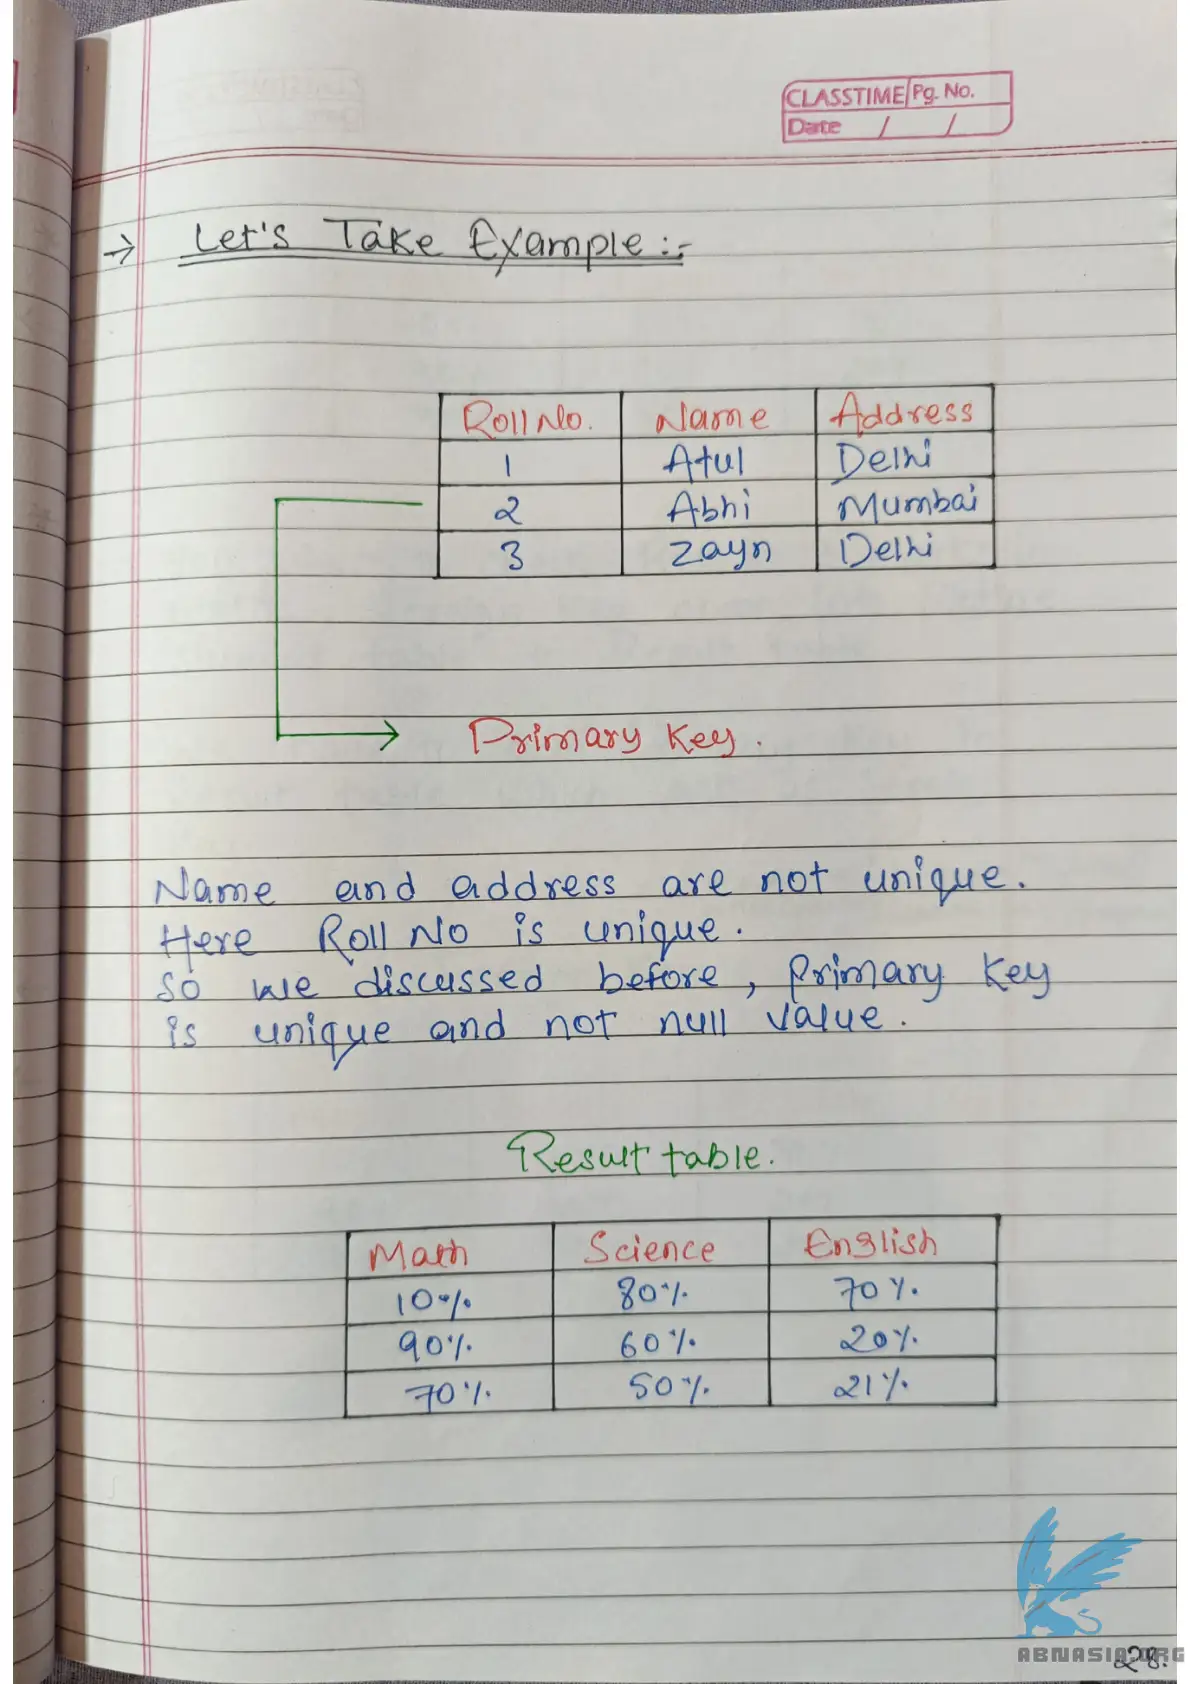 CLASSTIME Pg. No.
Date / /
→ Let's Take Example :-
Roll No. Name Address
1 Atul Delhi
2 Abhi Mumbai
3 Zayn Delhi
Primary Key.
Name and address are not unique.
Here Roll No is unique.
So we discussed before, Primary Key
is unique and not null value.
Result table.
Math Science English
10% 80% 70%
90% 60% 20%
70% 50% 21%
ABNASIA.ORG
28.